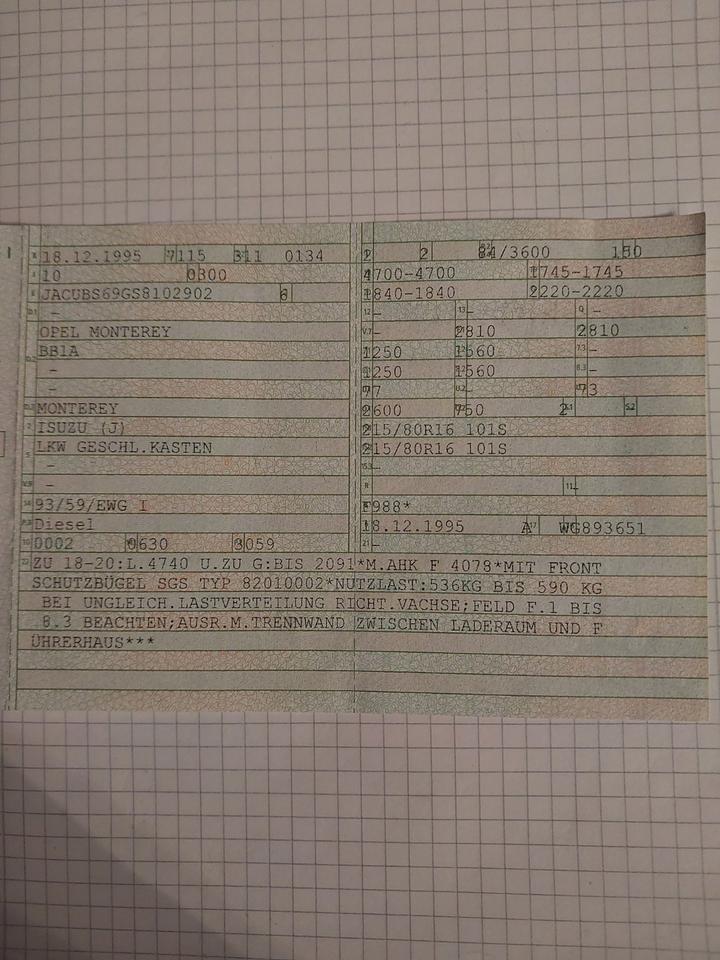 18.12.1995 7115 311 0134
10 0300
JACUBS69GS8102902 6
-
OPEL MONTEREY
BB1A
-
-
MONTEREY
ISUZU (J)
LKW GESCHL.KASTEN
-
-
93/59/EWG I
Diesel
0002 0630 3059
2 2 84/3600 150
4700-4700 1745-1745
1840-1840 2220-2220
- - -
- 2810 2810
1250 1560 -
1250 1560 -
77 - 73
2600 750 2 -
215/80R16 101S
215/80R16 101S
-
-
F988*
18.12.1995 A WG893651
-
ZU 18-20:L.4740 U.ZU G:BIS 2091*M.AHK F 4078*MIT FRONT
SCHUTZBÜGEL SGS TYP 82010002*NUTZLAST:536KG BIS 590 KG
BEI UNGLEICH.LASTVERTEILUNG RICHT.VACHSE;FELD F.1 BIS
8.3 BEACHTEN;AUSR.M.TRENNWAND ZWISCHEN LADERAUM UND F
ÜHRERHAUS***